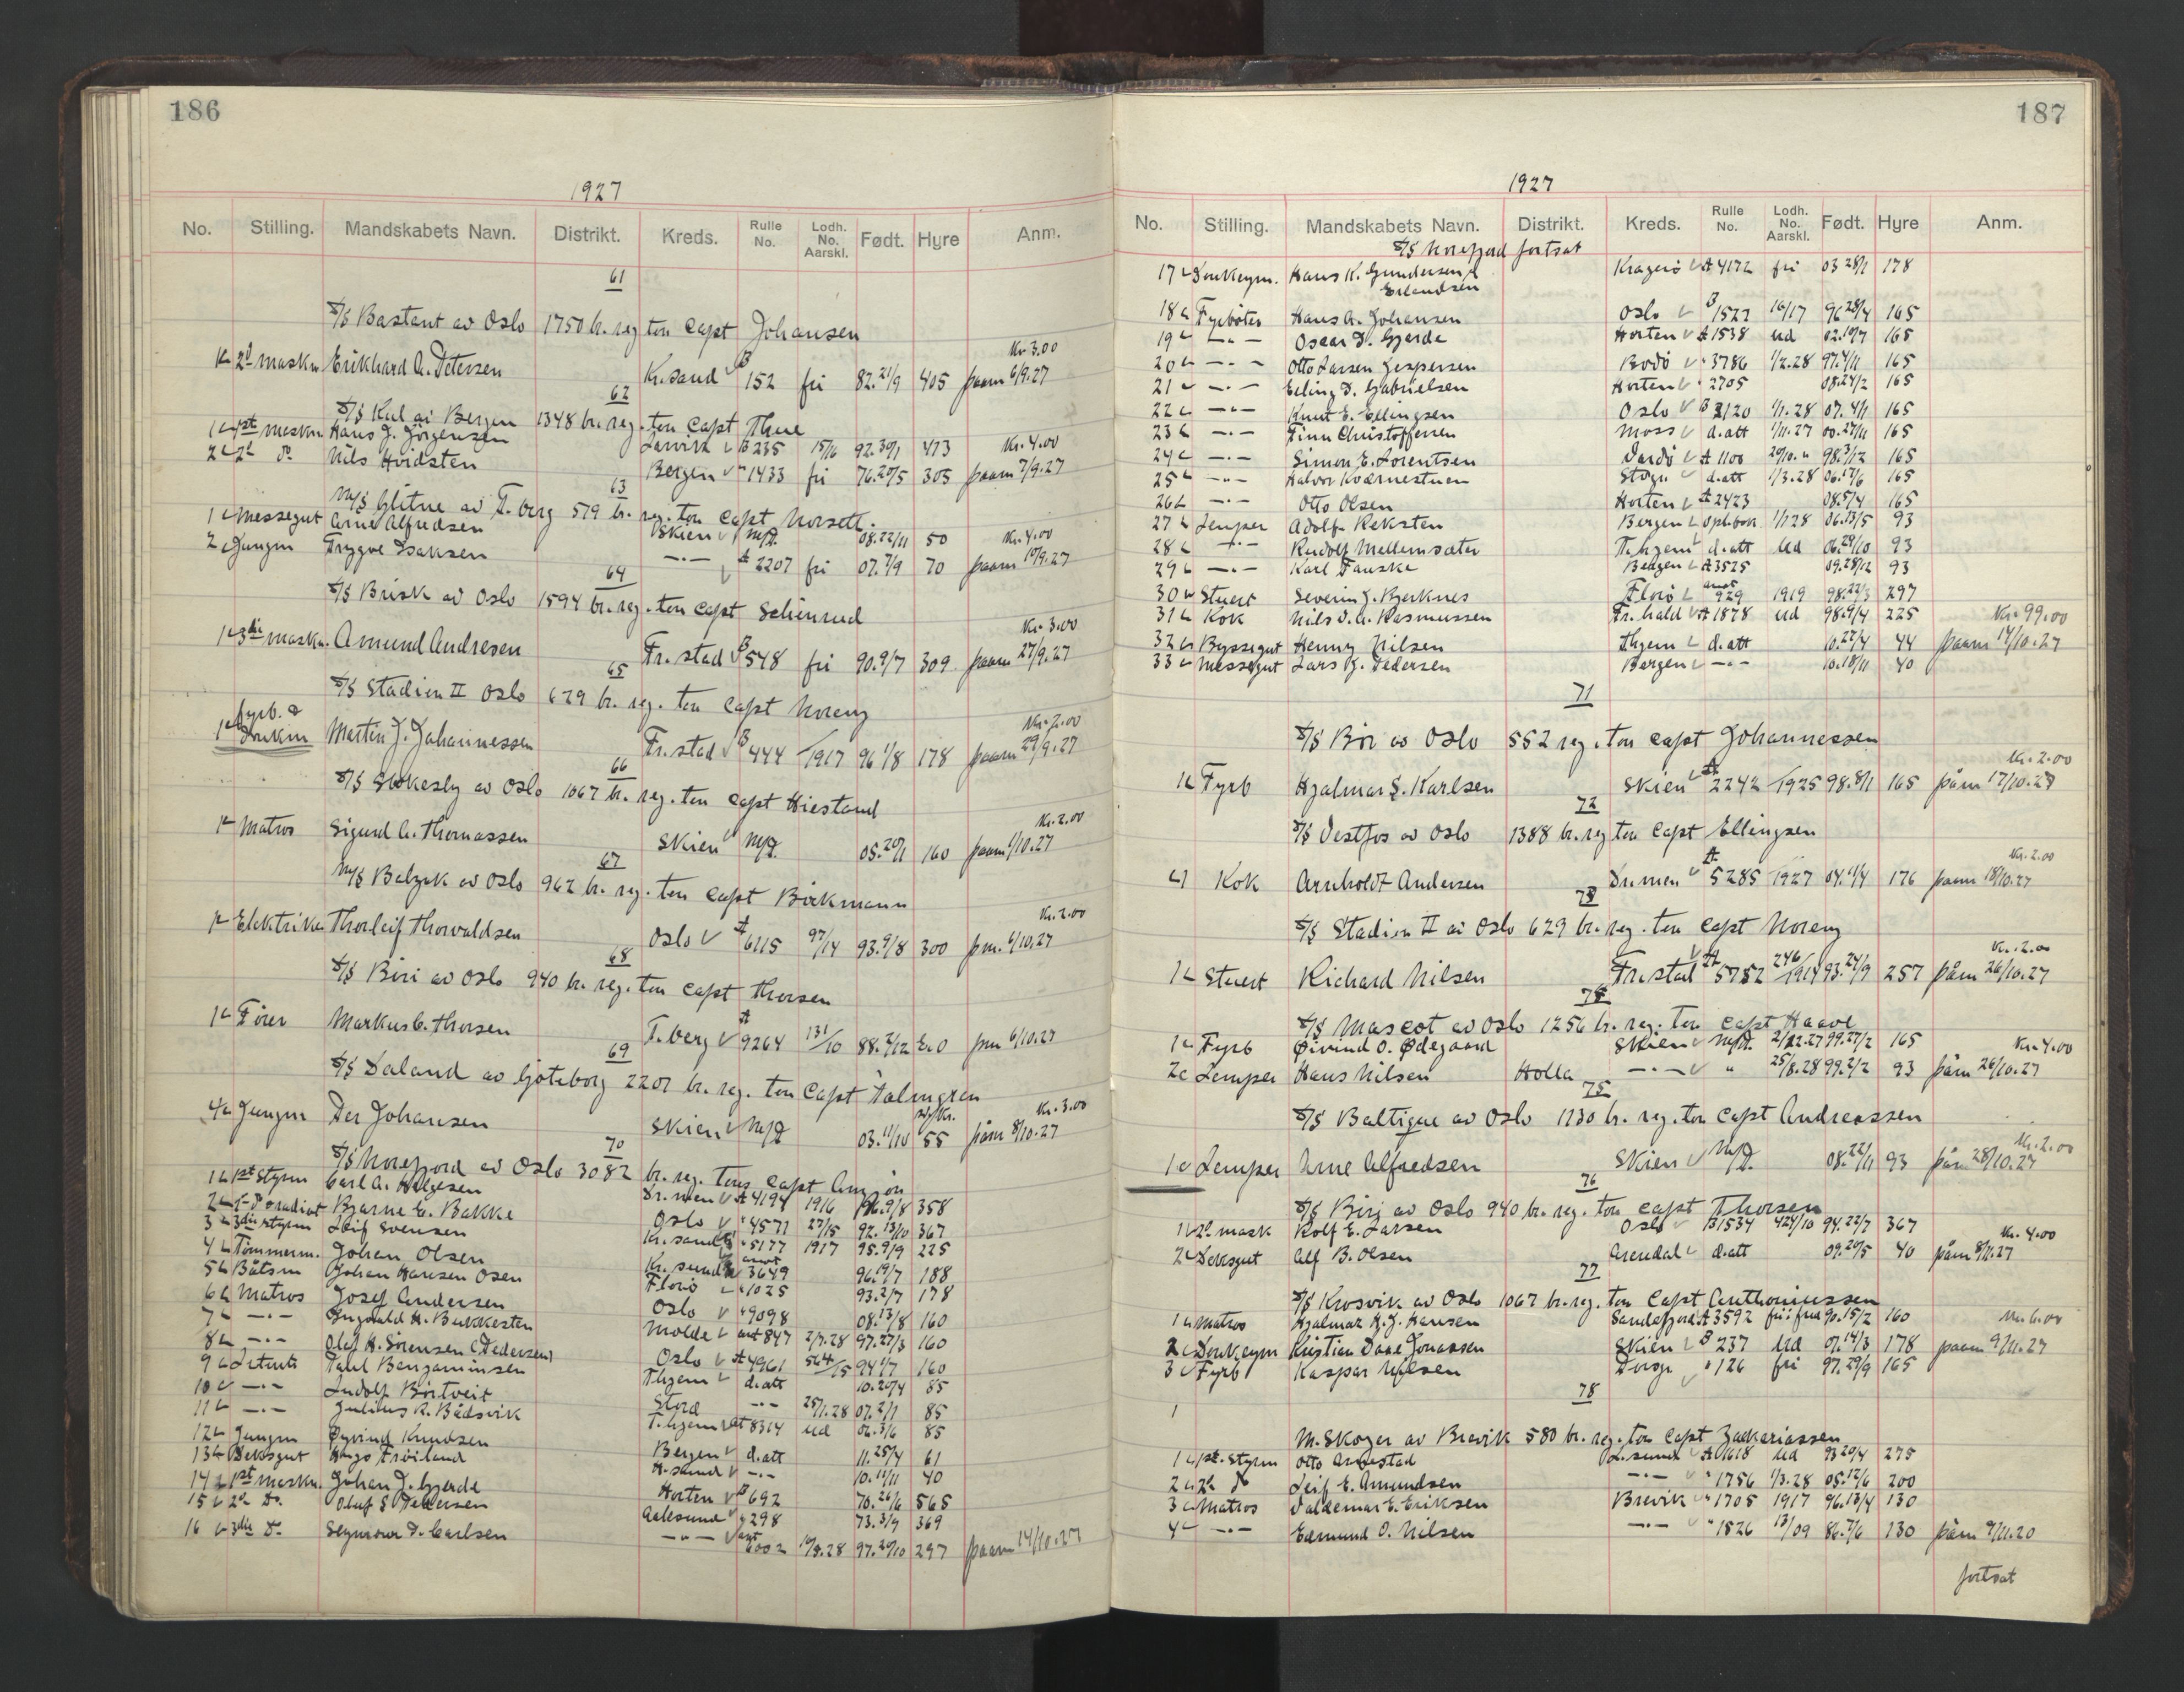 186
1927
No. Stilling. Mandskabets Navn. Distrikt. Kreds. Rulle No. Lodh. No. Aarskl. Født. Hyre Anm.
61
S/S Bastant av Oslo 1750 br. reg ton Capt Johansen
Kr 3.00
1 2d maskn Erikhard A. Petersen Kr.sand B 152 fri 82.21/9 405 paam 6/9.27
62
S/S Kul av Bergen 1348 br. reg. ton Capt Thue
1 1st maskn Hans J. Jörgensen Larvik B 235 15/16 92.30/1 473 Kr. 4.00
2 2d do Nils Hvidsten Bergen " 1433 fri 76.20/5 305 paam 7/9.27
63
M/S Glitne av T.berg 579 br. reg. ton Capt Norsett.
1 Messegut Arne Alfredsen Skien 08.22/11 50 Kr. 4.00
2 Jungm Trygve Isaksen -"- A 2207 fri 07.7/9 70 paam 19/9.27
64
S/S Brisk av Oslo 1594 br. reg. ton Capt Schienrud
Kr. 3.00
1 3die maskn. Amund Andresen Fr.stad B 548 fri 90.9/7 309 paam 27/9.27
65
S/S Stadion II Oslo 629 br. reg. ton Capt Noreng
Kr. 2.00
1 fyrb. & Donkm Martin J. Johannessen Fr.stad B 444 /1917 96 1/8 178 paam 29/9.27
66
S/S Stokesby av Oslo 1067 br. reg. ton Capt Hiestand
Kr. 2.00
1 Matros Sigurd A. Thomassen Skien 05.20/1 160 paam 1/10.27
67
M/S Balzak av Oslo 962 br. reg. ton Capt Birkmann
Kr. 2.00
1 Elektriker Thorleif Thorvaldsen Oslo A 6115 97/14 93.9/8 300 pm. 6/10.27
68
S/S Biri av Oslo 940 br. reg. ton Capt Thorsen
1 Förer Markus C. Thorsen T.berg A 9264 131/10 88.2/12 pm 6/10.27
69
S/S Daland av Göteborg 2201 br. reg. ton Capt Palmgren
Kr. 3.00
4 Jungm Per Johansen Skien 03.11/10 55 paam 8/10.27
70
S/S Norefjord av Oslo 3082 br. reg. tons Capt
1 1st Styrm Carl A. Helgesen Dr.men A 4194 1916 96.9/8 358
2 2d Do radiot Bjarne E. Bakke Oslo " 4571 27/15 92.13/10 367
3 3die styrm Leif Svensen Kr.sand " 5177 1917 95.9/9 225
4 Tömmerm. Johan Olsen Kr.sund 3649 96.19/7 188
5 Båtsm Johan Hansen Osen Florö " 1025 93.2/7 178
6 Matros Josef Andersen Oslo " 9098 08.13/8 160
7 -"- Ingvald H. Bukkesten Molde 847 2/7.28 97.27/3 160
8 -"- Olaf H. Sörensen (Pedersen) Oslo A 4961 564/15 94 1/7 160
9 Letmts Paul Benjaminsen Thjem d.att 10.20/4 85
10 -"- Ludolf Börtveit Stord -"- 25/1.28 07.2/1 85
11 -"- Julius R. Bådsvik T.hjem A 8314 Ud 06.3/6 85
12 Jungm Öyvind Knudsen Bergen d.att 11.25/4 61
13 Deksgut Hugo Fröiland H.sund -"- 10.11/11 40
14 1st maskn. Johan J. Gjerde Horten B 692 70.26/6 565
15 2d Do. Oluf S Pedersen Aalesund " 298 73.3/9 369
16 3die Do Seymour D. Carlsen -"- 6002 10/3.28 97.20/10 297 paam 14/10.27
187
1927
No. Stilling. Mandskabets Navn. Distrikt. Kreds. Rulle No. Lodh. No. Aarskl. Født. Hyre Anm.
S/S Norefjord fortsat
17 Donkeym. Hans K. Gundersen Kragerö A 4172 fri 03 28/1 178
Erlandsen
18 Fyrböter Hans A. Johansen Oslo B 1527 16/17 96 28/4 165
19 -"- Oscar D. Gjerde Horten A 1538 Ud 02.10/7 165
20 -"- Otto Larsen Jespersen Bodö " 3786 1/2.28 97.4/11 165
21 -"- Erling D. Gabrielsen Horten " 2705 08.24/2 165
22 -"- Knut E. Ellingsen Oslo B 2120 1/1.28 07.4/1 165
23 -"- Finn Christoffersen Moss d.att 1/11.27 00.27/11 165
24 -"- Simon E. Lorentsen Vardö A 1100 29/10." 98.3/12 165
25 -"- Halvor Kvernestuen d.att 1/3.28 06.17/6 165
26 -"- Otto Olsen Horten A 2423 08.5/4 165
27 Lemper Adolf Reksten Bergen opl.bok 1/1 28 06.13/5 93
28 -"- Rudolf Mellemsæter T.hjem d.att Ud 06.29/10 93
29 -"- Karl Fauske Bergen A 3525 09.28/12 93
30 Stuert Severin J. Bjerknes Florö 929 1919 98.22/3 297
31 Kok Nils D. A. Rasmussen Fr.hald A 1878 Ud 98.9/4 225 Kr. 99.00
32 Byssegut Henry Nilsen Thjem d.att 10.27/4 44 paam 14/10.27
33 Messegut Lars J. Pedersen Bergen -"- 10.18/11 40
71
S/S Bir av Oslo 552 reg. ton Capt Johannessen
Kr. 2.00
1 Fyrb Hjalmar S. Karlsen Skien A 2242 /1925 98.8/1 165 påm 17/10.27
72
S/S Vestfos av Oslo 1388 br. reg ton Capt Ellingsen
Kr. 2.00
1 Kok Arnholdt Andersen Dr.men A 5285 /1927 04.1/4 176 paam 18/10.27
73
S/S Stadion II av Oslo 629 br. reg. ton Capt Noreng
Kr. 2.00
1 Stuert Richard Nilsen Fr.stad A 5752 246/1914 93.24/9 257 påm 26/10.27
74
S/S Mascot av Oslo 1256 br. reg. ton Capt Haave
1 Fyrb Øivind O. Ødegaard Skien 2/12.27 99.27/2 165 Kr. 4.00
2 Lemper Hans Nilsen Holla -"- " 25/8.28 99.2/2 93 påm 26/10.27
75
S/S Baltique av Oslo 1130 br. reg. ton Capt Andreassen
Kr. 2.00
1 Lemper Arne Alfredsen Skien 08.22/11 93 påm 28/10.27
76
S/S Biri av Oslo 940 br. reg. ton Capt Thorsen
1 2d mask Rolf E. Larsen Oslo B 1534 424/10 94.22/7 367 Kr. 4.00
2 Deksgut Alf B. Olsen Arendal d.att 09.20/5 40 påm 8/11.27
77
S/S Krosvik av Oslo 1067 br. reg. ton Capt Anthoniussen
1 Matros Hjalmar K. J. Hansen Sandefjord A 3592 fri i fred 90.15/2 160 Kr. 6.00
2 Donkeym Kristian Dane Jonassen Skien B 237 Ud 07.14/3 178 paam 9/11.27
3 Fyrb Kaspar Nilsen " 126 fri 97.29/9 165
78
1
M. Skoger av Brevik 580 br. reg. ton Capt Zackariassen
1 1st. Styrm Otto Arnestad L.sund A 1618 Ud 93 20/4 275
2 2d Do Leif E. Amundsen -"- " 1756 1/3.28 05.12/6 200
3 Matros Valdemar E. Eriksen Brevik " 1705 1917 96.13/4 130
4 -"- Edmund O. Nilsen -"- " 1526 13/09 86.7/6 130 påm 9/11.20
fortsat